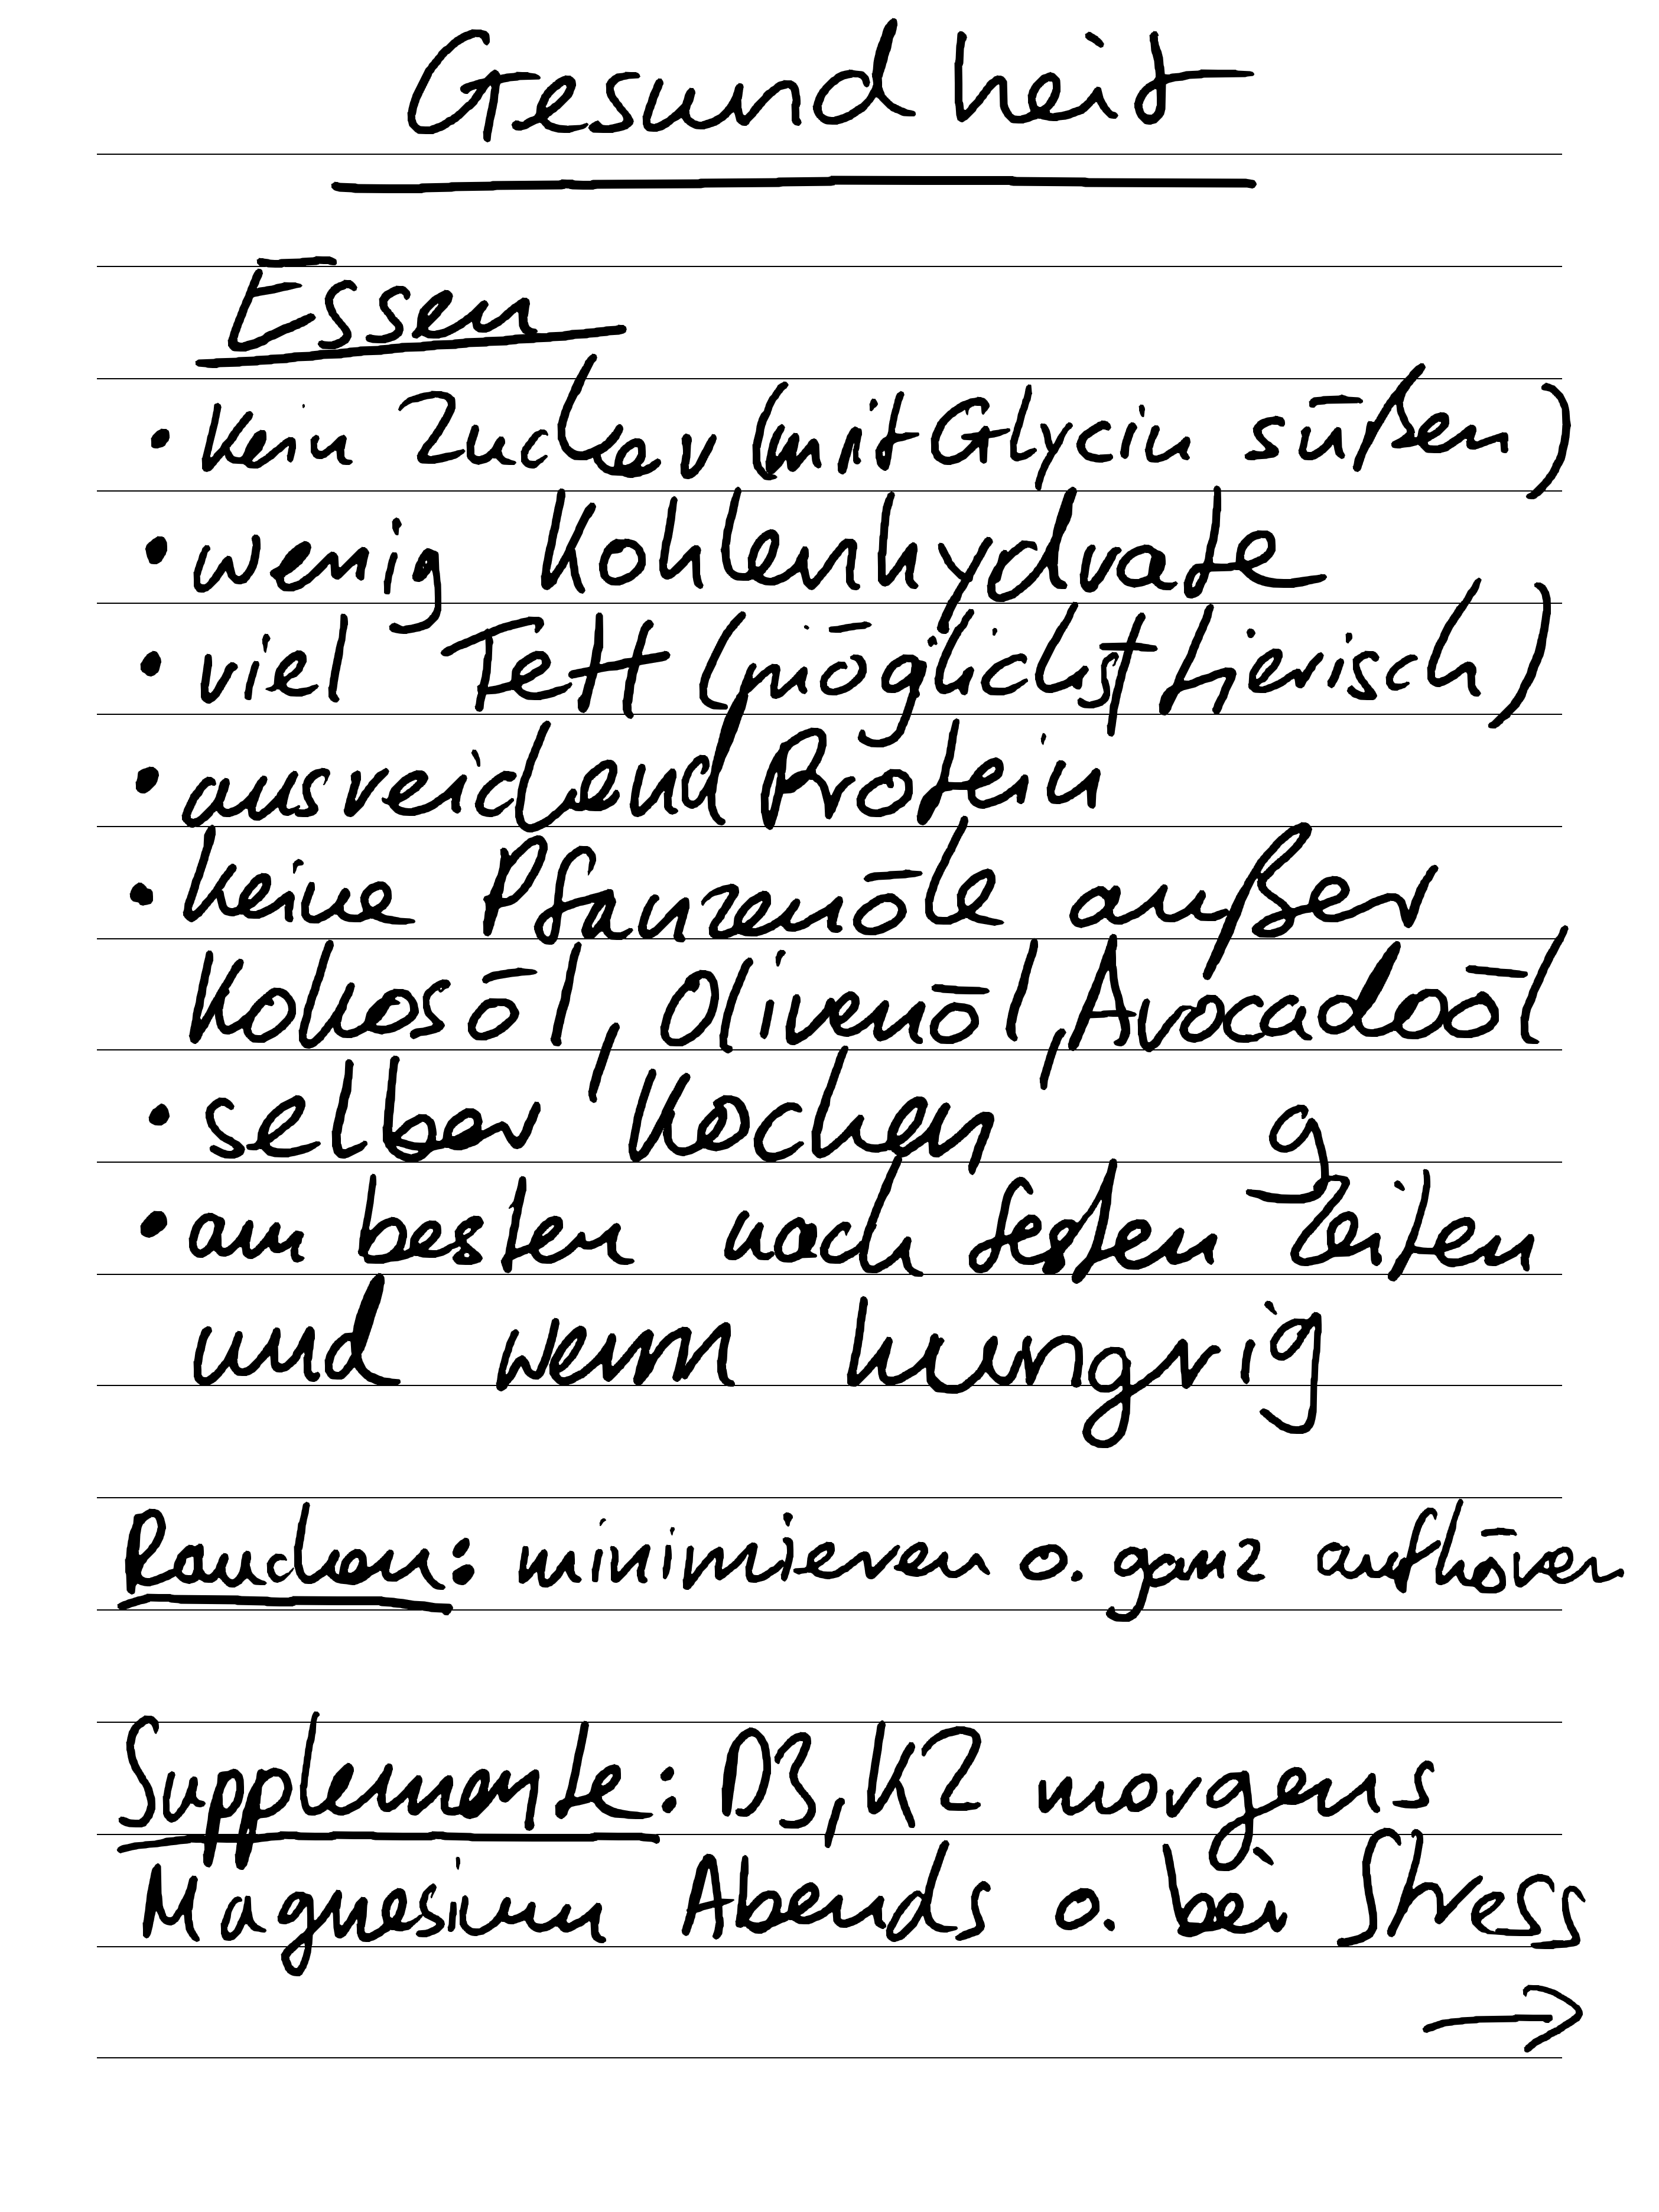 Gesundheit
Essen
• kein Zucker (mit Glycin süßen)
• wenig Kohlenhydrate
• viel Fett (möglichst tierisch)
• ausreichend Protein
• keine Pflanzenöle außer
Kokosöl, Olivenöl, Avocadoöl
• selber kochen
• am besten nach festen Zeiten
und wenn hungrig
Rauchen: minimieren o. ganz aufhören
Supplemente: D3, K2 morgens
Magnesium Abends o. bei Stress
→